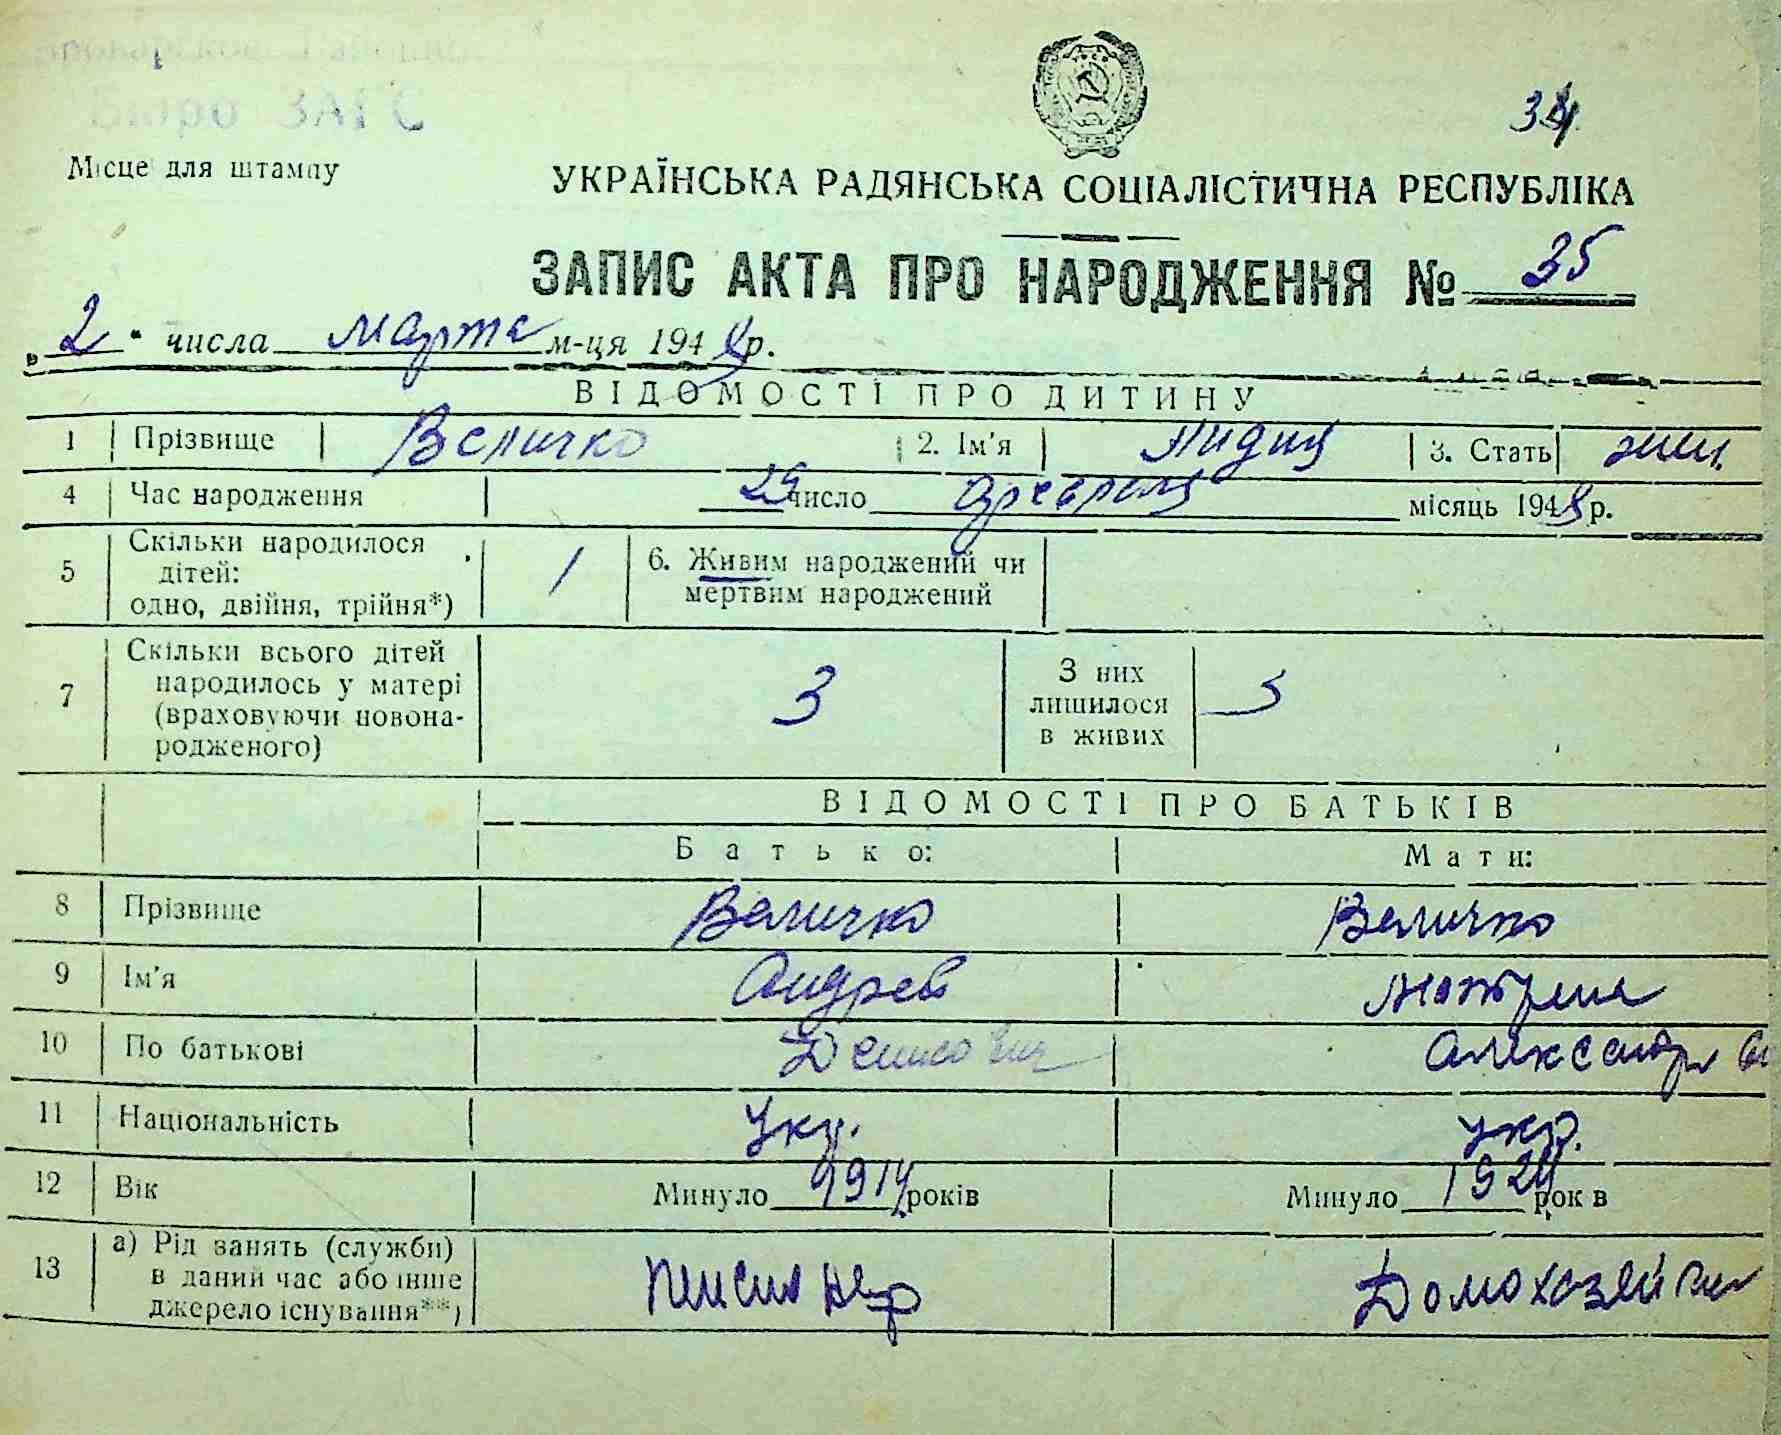 Бюро ЗАГС
34
Місце для штампу
УКРАЇНСЬКА РАДЯНСЬКА СОЦІАЛІСТИЧНА РЕСПУБЛІКА
ЗАПИС АКТА ПРО НАРОДЖЕННЯ № 35
„ 2 " числа марта м-ця 1948 р.
ВІДОМОСТІ ПРО ДИТИНУ
1 Прізвище Величко 2. Ім'я Лидия 3. Стать жен.
4 Час народження 29 число февраля місяць 1948 р.
5 Скільки народилося дітей: одно, двійня, трійня*) 1 6. Живим народжений чи мертвим народжений
7 Скільки всього дітей народилось у матері (враховуючи новона-родженого) 3 З них лишилося в живих 3
ВІДОМОСТІ ПРО БАТЬКІВ
Батько: Мати:
8 Прізвище Величко Величко
9 Ім'я Андрей
10 По батькові Александр
11 Національність Укр. укр.
12 Вік Минуло 1914 років Минуло 1924 рок в
13 а) Рід занять (служби) в даний час або інше джерело існування**) пенсионер Домохозяйка